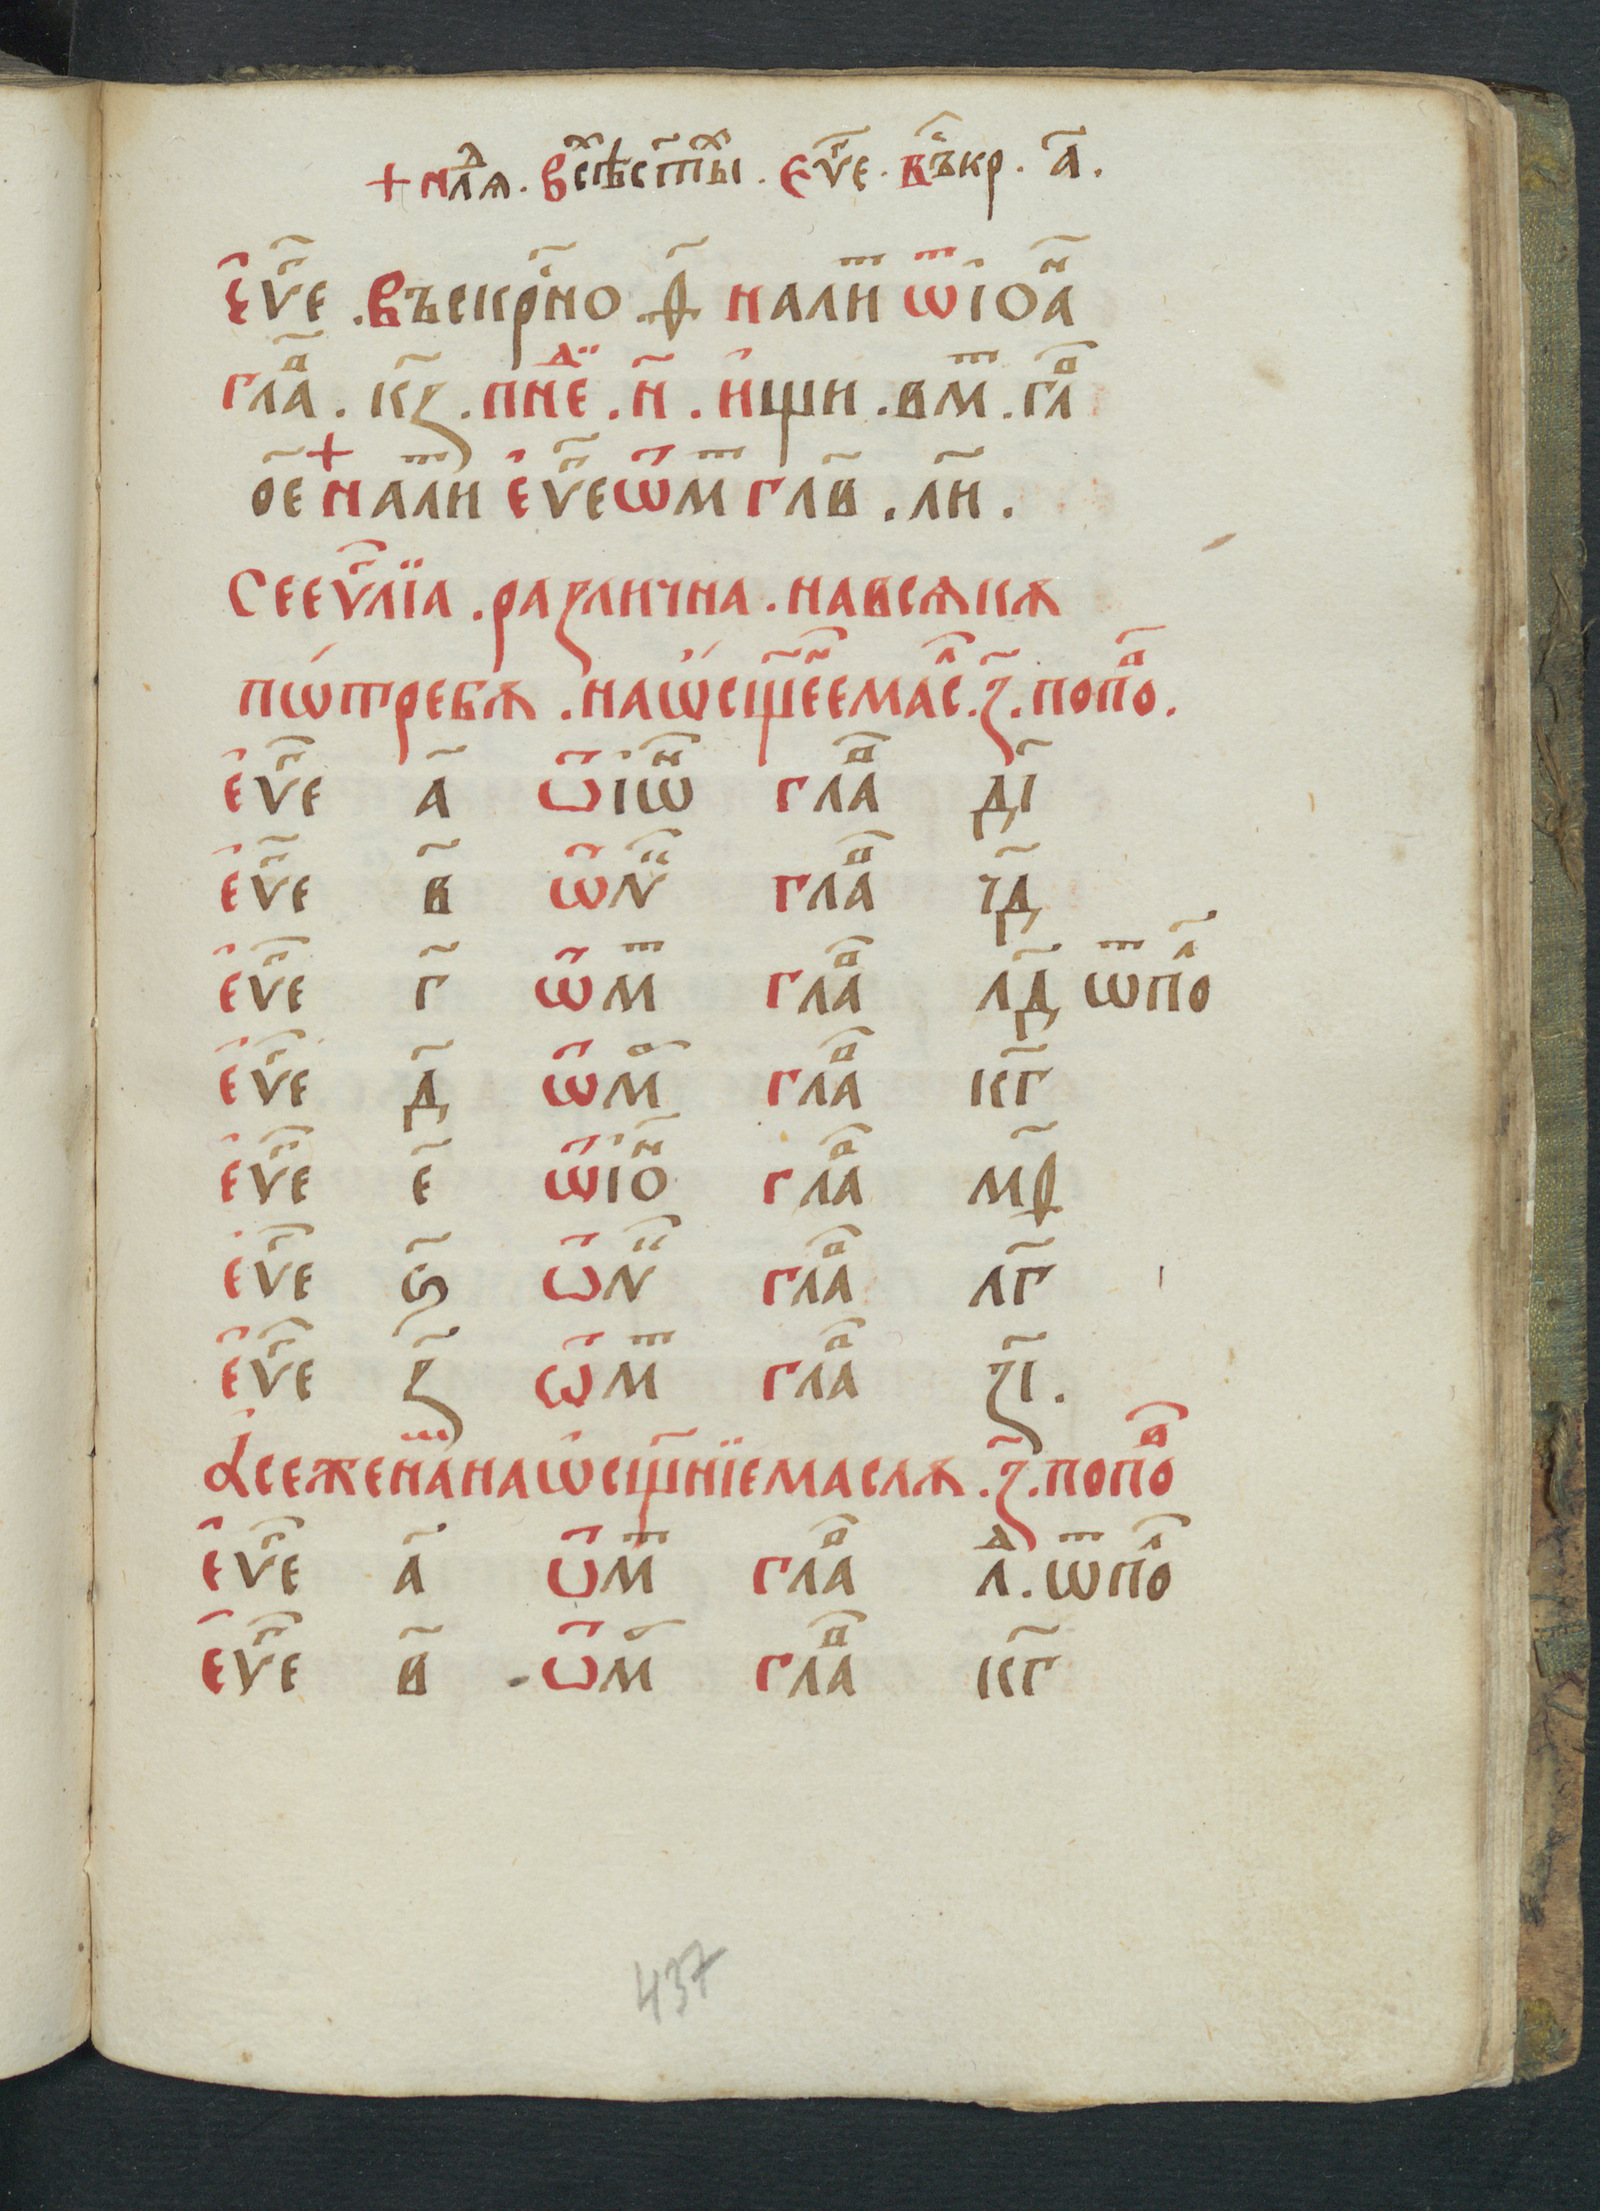 + нлⷣѧ . всⷯѣсттⷯы . еѵⷢ҇е . вⷭ҇ъкр . а҃ .
еѵⷢ҇е . въскрⷭ҇но . ѳ҃ налиⷮ ѿ іоаⷩ҇
глаⷡ҇ . кз҃ . пнеⷣ . и҃ . ищи . вмⷮ . глⷡ҇
ое҃ + налиⷮ еѵⷢ҇е ѿ мⷮ глв҃ . ли҃ .
Се еѵⷢ҇лїа . различна . на всѧкѧ
пѡтребѧ . на ѡсщ҃еⷩ҇е масⷧ҇ . з҃ . попоⷡ҇ .
еѵⷢ҇е а҃ ѿ іѡⷩ҇ глаⷡ҇ ді҃
еѵⷢ҇е в҃ ѿ лⷦ҇ глаⷡ҇ чд҃
еѵⷢ҇е г҃ ѿ мⷮ глаⷡ҇ лд҃ ѿ поⷧ҇
еѵⷢ҇е д҃ ѿ мⷬ глаⷡ҇ кг҃
еѵⷢ҇е е҃ ѿ іоⷩ҇ глаⷡ҇ мѳ҃
еѵⷢ҇е ѕ҃ ѿ лⷦ҇ глаⷡ҇ лг҃
еѵⷢ҇е з҃ ѿ мⷮ глаⷡ҇ зі҃ .
А се женаⷨ на ѡсщ҃нїе маслѧ . з҃ . попоⷡ҇
еѵⷢ҇е а҃ ѿ мⷮ глаⷡ҇ лⷣ . ѿ поⷧ҇
еѵⷢ҇е в҃ ѿ мⷬ глаⷡ҇ кг҃
437